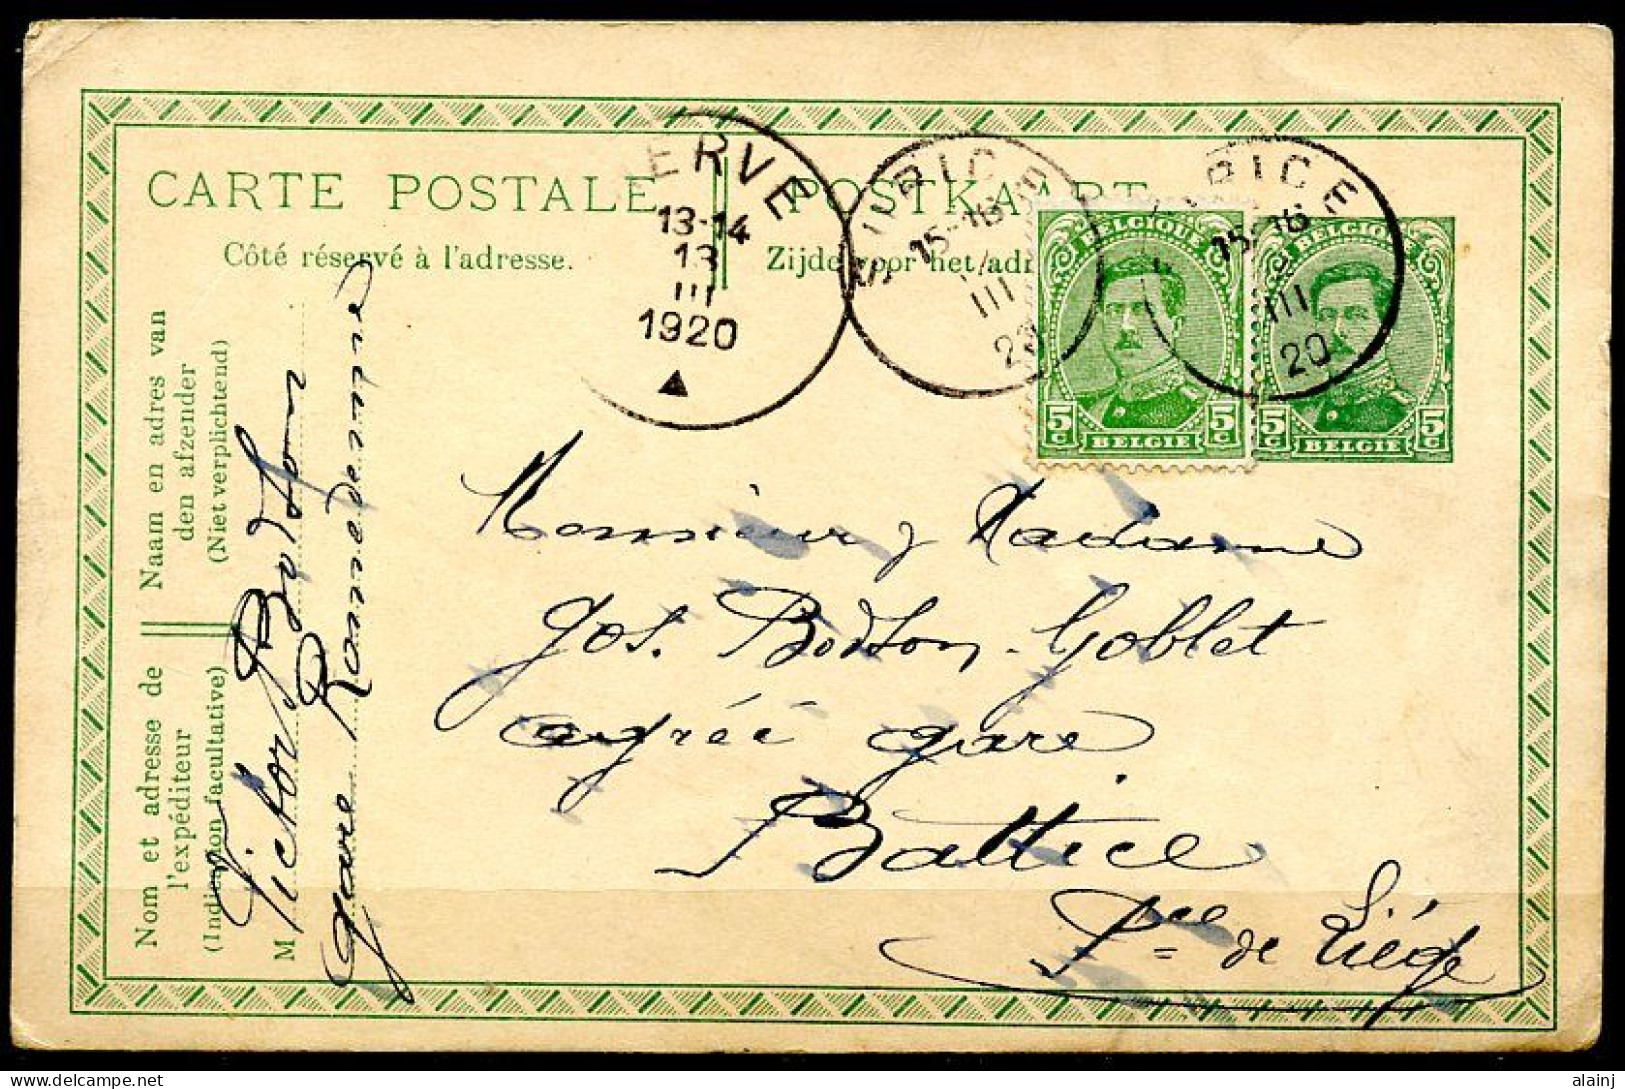 CARTE POSTALE
POSTKAART
Côté réservé à l'adresse.
Zijde voor het adr
ERVE
13-14
13
III
1920
SURICE
15-16
III
20
RICE
15-16
III
20
BELGIQUE
5c 5c
BELGIE
BELGIQUE
5c 5c
BELGIE
Naam en adres van
den afzender
(Niet verplichtend)
Nom et adresse de
l'expéditeur
(Indication facultative)
M
Victor Bodson
gare Romedenne
Monsieur & Madame
Jos. Bodson-Goblet
agréé gare
Battice
Pce de Liége
delcampe.net
alainj